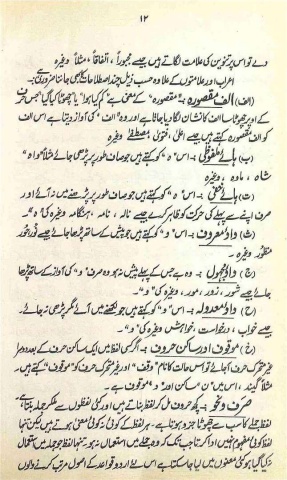 ۱۲
دے تو اس پر تنوین کی علامت لگاتے ہیں جیسے مجبوراً، اتفاقاً، مثلاً وغیرہ
اعراب اور علامتوں کے علاوہ حسب ذیل چند اصطلاحات بھی جاننا ضروری ہے۔
(الف) الف مقصورہ:۔ "مقصورہ" کے معنی ہے "کم کیا ہوا" یا "چھوٹا کیا گیا" جس حرف
کے اوپر چھوٹا سا الف کا نشان لگا دیا جاتا ہے اور وہ "الف" کی آواز دیتا ہے اس الف
کو الف مقصورہ کہتے ہیں جیسے اعلیٰ، فتویٰ، مصطفیٰ وغیرہ
(ب) ہائے ملفوظی:۔ اس "ہ" کو کہتے ہیں جو صاف طور پر پڑھی جائے مثلاً "واہ"
شاہ، ماہ، وغیرہ
(ت) ہائے مختفی:۔ اس "ہ" کو کہتے ہیں جو صاف طور پر پڑھنے میں نہ آئے اور
صرف اپنے سے پہلے کی حرکت کو ظاہر کرے جیسے نالہ، نامہ، ہنگامہ وغیرہ کی "ہ"۔
(ث) واؤ معروف:۔ اس "و" کو کہتے ہیں جو پیش کے ساتھ پڑھا جائے جیسے نور، حور
منظور۔ وغیرہ
(ج) واؤ مجہول:۔ وہ ہے جس کے پہلے پیش نہ ہو وہ صرف "و" کی آواز کے ساتھ پڑھا
جائے جیسے شور، زور، مور، وغیرہ کی "و"۔
(ح) واؤ معدولہ:۔ اس "و" کو کہتے ہیں جو لکھنے میں آئے مگر پڑھی نہ جائے۔
جیسے خواب، درخواست، خواہش وغیرہ کی "و"۔
(خ) موقوف اور ساکن حروف:۔ اگر کسی لفظ میں ایک ساکن حرف کے بعد دوسرا
غیر متحرک حرف آ جائے تو اس حالت کا نام "وقف" اور غیر متحرک حرف کو "موقوف" کہتے ہیں۔
مثلاً گیند، اس میں ن ساکن اور د موقوف ہے۔
صرف و نحو:۔ کچھ حروف مل کر لفظ بناتے ہیں اور کئی لفظوں سے مل کر جملہ بنتا ہے۔
لفظ جملے کا سب سے چھوٹا جزو ہوتا ہے۔ ہر لفظ کے کوئی نہ کوئی معنی ہوتے ہیں لیکن تنہا
لفظ کوئی مفہوم نہیں ادا کرتا جب تک کہ وہ جملے میں استعمال نہ ہو۔ تنہا لفظ جو جملے میں استعمال
نہ کیا گیا ہو کئی معنوں میں لیا جا سکتا ہے اس لئے اردو قواعد کے اصول مرتب کرنے والوں